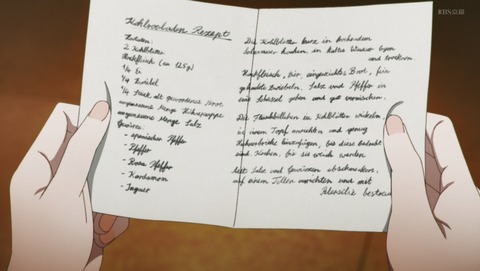 KBS京都
Kohlrouladen Rezept
Zutaten:
2 Kohlblätter
Hackfleisch (ca 125g)
1/4 Ei
1/4 Zwiebel
1/4 Stück alt gewordenes Brot
angemessene Menge
angemessene Menge Salz
Gewürze:
- spanischer Pfeffer
- Pfeffer
- Rosa Pfeffer
- Kardamom
- Ingwer
Die Kohlblätter kurz in kochendem
kochen, in kaltes Wasser legen
und trocknen.
Hackfleisch, Eier, eingeweichtes Brot, fein
gehackte Zwiebeln, Salz und Pfeffer in
eine Schüssel geben und gut vermischen.
Die Fleischbällchen in Kohlblätter wickeln,
in einem Topf anrichten und genug
hinzufügen, bis diese bedeckt
sind. Kochen, bis sie weich werden.
Mit Salz und Gewürzen abschmecken,
auf einem Teller anrichten und mit
Petersilie